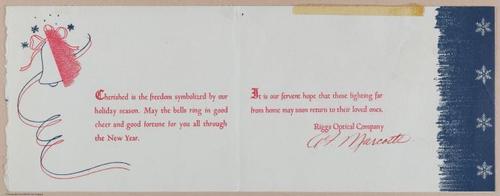 Cherished is the freedom symbolized by our
holiday season. May the bells ring in good
cheer and good fortune for you all through
the New Year.
It is our fervent hope that those fighting far
from home may soon return to their loved ones.
Riggs Optical Company
Marcotte